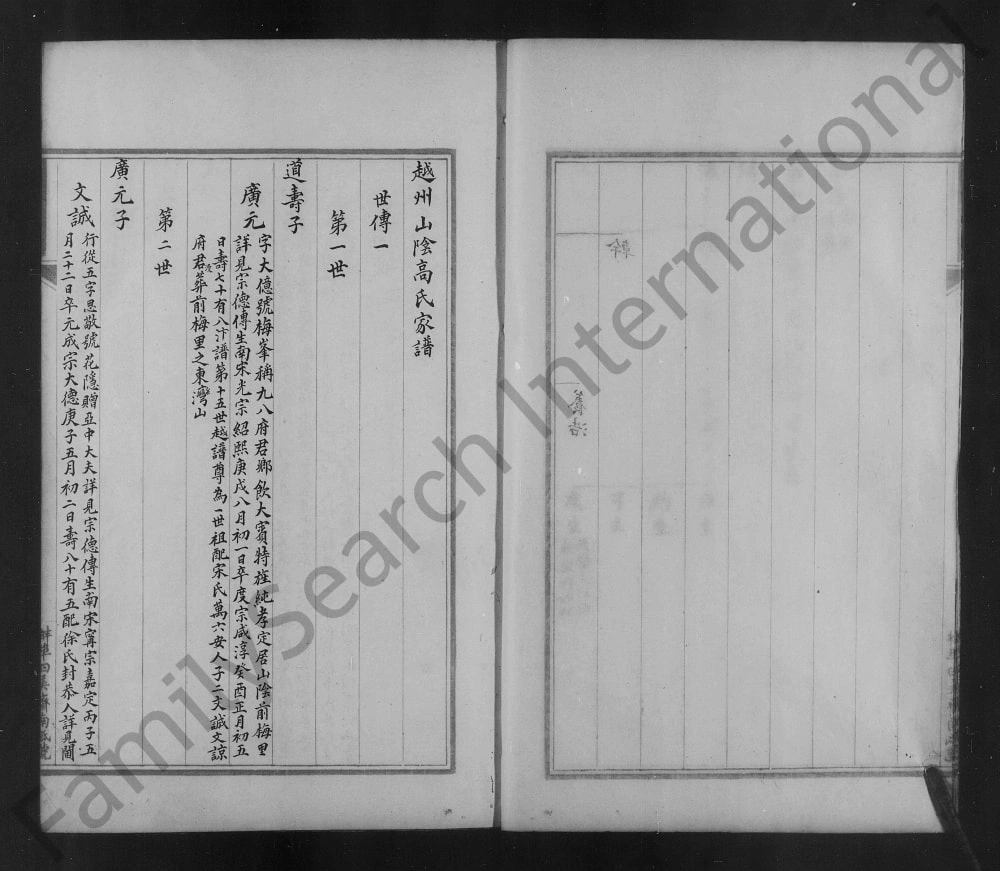 越州山陰高氏家譜
世傳一
第一世
道壽子
廣元
字大億號梅峯稱九八府君鄉飲大賓特旌純孝定居山陰前梅里
詳見宗德傳生南宋光宗紹熙庚戌八月初一日卒度宗咸淳癸酉正月初五
日壽七十有八汴譜第十五世越譜尊為一世祖配宋氏萬六安人子二文誠文諒
府君葬前梅里之東灣山
第二世
廣元子
文誠
行從五字思敬號花隱贈亞中大夫詳見宗德傳生南宋寧宗嘉定丙子五
月二十二日卒元成宗大德庚子五月初二日壽八十有五配徐氏封恭人詳見閫
Family Search International